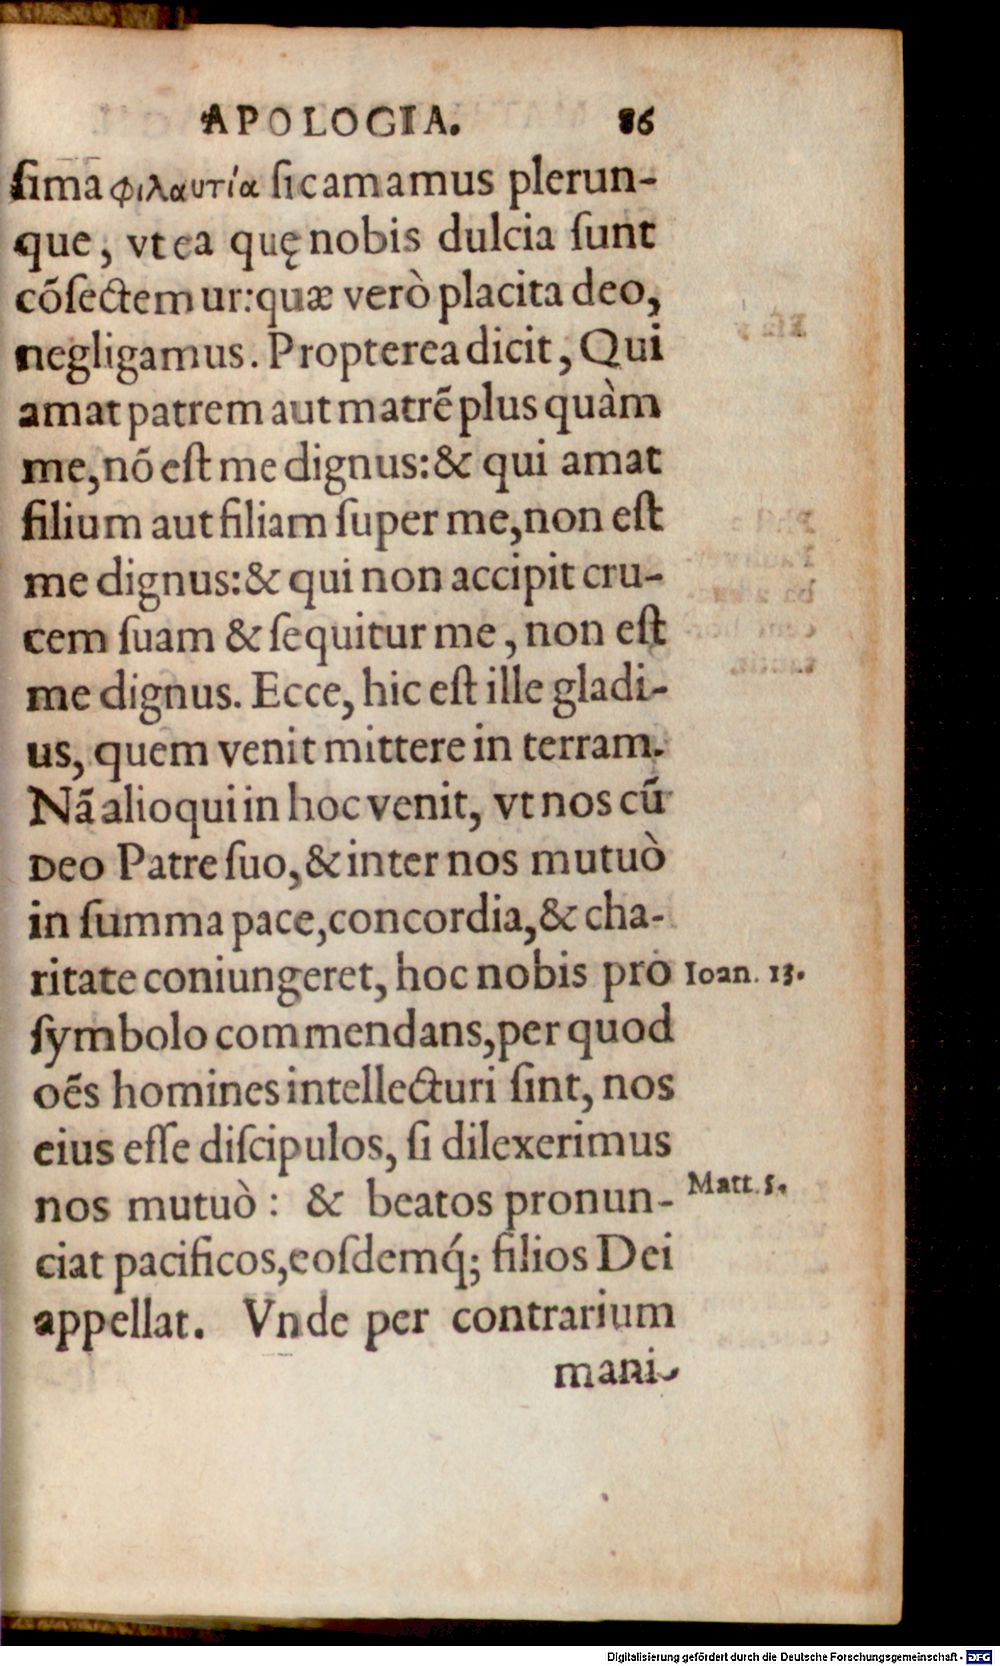 APOLOGIA. 86
ſima φιλαυτία ſic amamus plerun-
que, vt ea quę nobis dulcia ſunt
cõſectemur: quæ verò placita deo,
negligamus. Propterea dicit, Qui
amat patrem aut matrẽ plus quàm
me, nõ eſt me dignus: & qui amat
filium aut filiam ſuper me, non eſt
me dignus: & qui non accipit cru-
cem ſuam & ſequitur me, non eſt
me dignus. Ecce, hic eſt ille gladi-
us, quem venit mittere in terram.
Nã alioqui in hoc venit, vt nos cũ
DEO Patre ſuo, & inter nos mutuò
in ſumma pace, concordia, & cha-
ritate coniungeret, hoc nobis pro Ioan. 13.
ſymbolo commendans, per quod
oẽs homines intellecturi ſint, nos
eius eſſe diſcipulos, ſi dilexerimus
nos mutuò: & beatos pronun- Matt. 5.
ciat pacificos, eoſdemq́; filios Dei
appellat. Vnde per contrarium
mani-
Digitalisierung gefördert durch die Deutsche Forschungsgemeinschaft - DFG